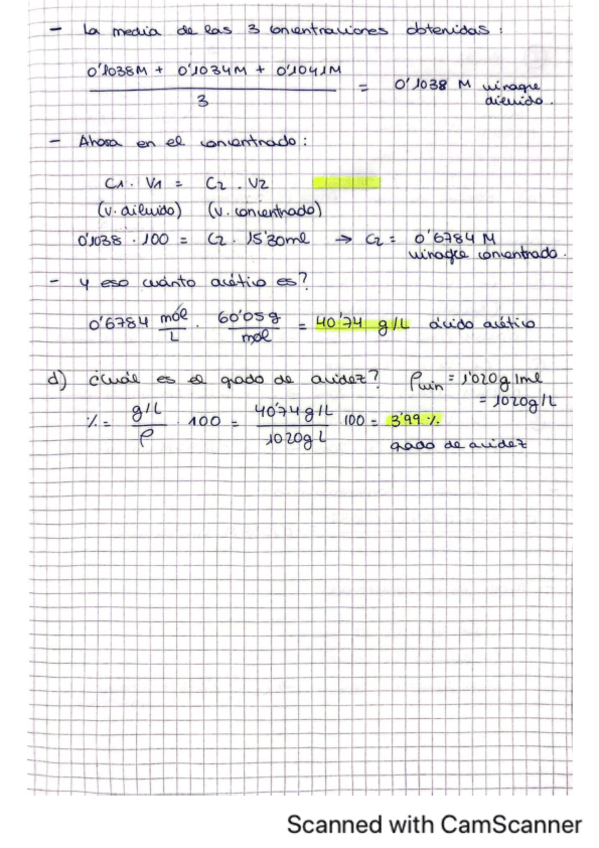 - La media de las 3 concentraciones obtenidas:
0'1038M + 0'1034M + 0'1041M / 3 = 0'1038 M vinagre diluido.
- Ahora en el concentrado:
C1 · V1 = C2 · V2
(v. diluido) (v. concentrado)
0'1038 · 100 = C2 · 15'30ml → C2 = 0'6784 M
vinagre concentrado.
- Y eso cuánto acético es?
0'6784 mol/L · 60'05 g/mol = 40'74 g/L ácido acético
d) ¿Cuál es el grado de acidez? ρvin = 1'020g/ml
= 1020g/L
% = g/L / ρ · 100 = 40'74 g/L / 1020g L 100 = 3'99 %
grado de acidez
Scanned with CamScanner